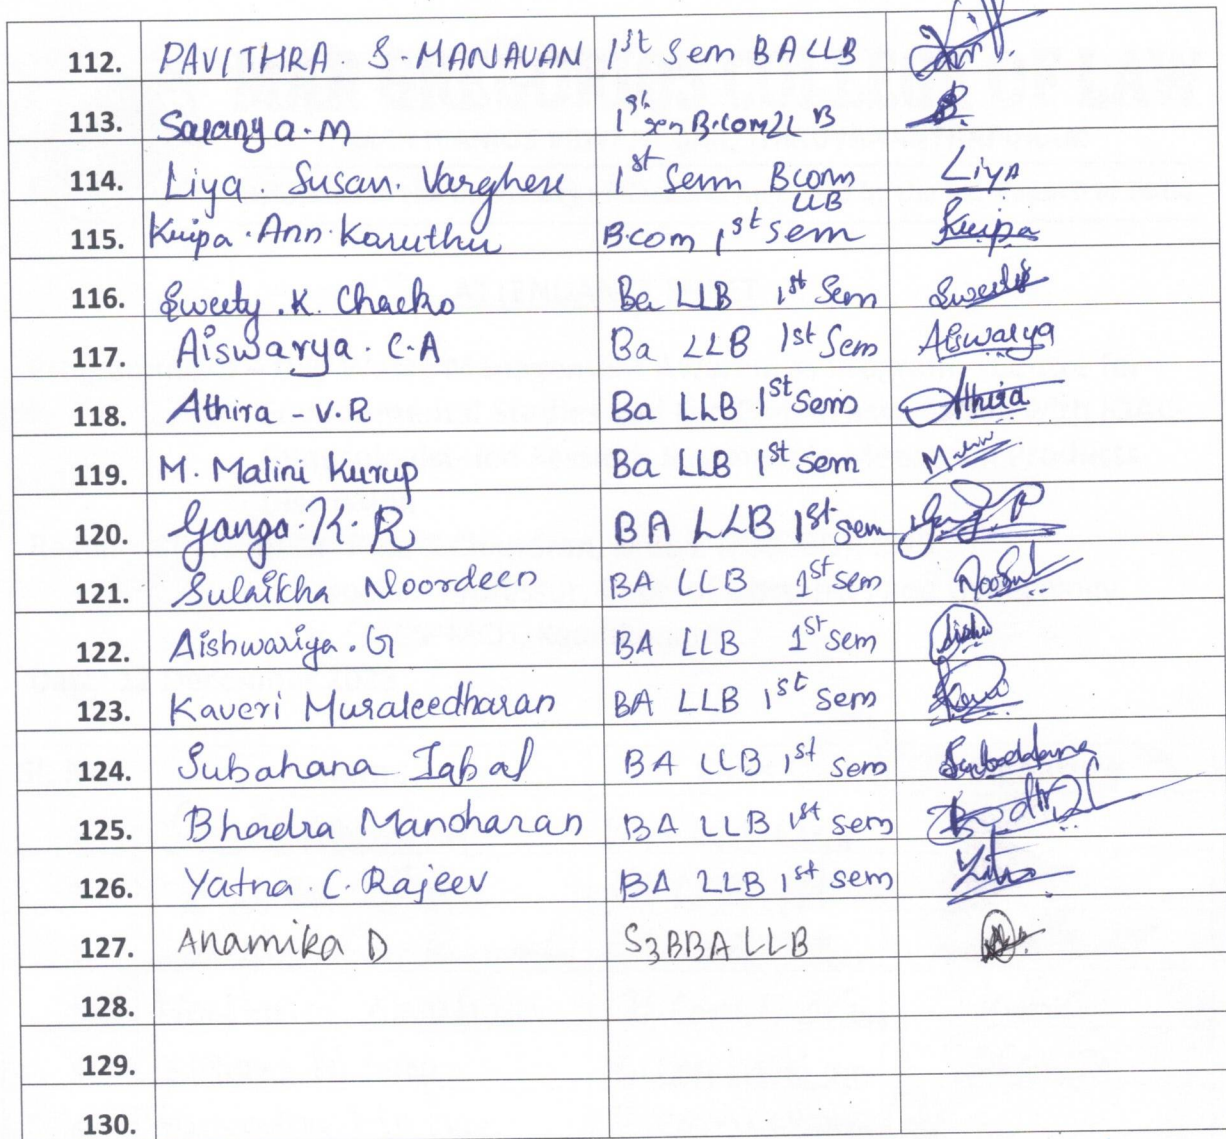 112. PAVITHRA S. MANAVAN 1st Sem BA LLB
113. Saranya.m 1st sem B.com LLB
114. Liya. Susan. Varghese 1st Sem Bcom LLB Liya
115. Kripa.Ann.Karuthu B.com 1st sem Kripa
116. Sweety.K. Chacko Ba LLB 1st Sem Sweety
117. Aiswarya. C.A Ba LLB 1st Sem Aiswarya
118. Athira - V.R Ba LLB 1st Sem Athira
119. M. Malini Kurup Ba LLB 1st Sem
120. Ganga.K.R BA LLB 1st sem
121. Sulaikha Noordeen BA LLB 1st Sem
122. Aishwariya.G BA LLB 1st Sem
123. Kaveri Muraleedharan BA LLB 1st Sem
124. Subahana Iqbal BA LLB 1st Sem
125. Bhadra Manoharan BA LLB 1st Sem
126. Yatna.C.Rajeev BA LLB 1st sem
127. Anamika D S3 BBA LLB
128.
129.
130.